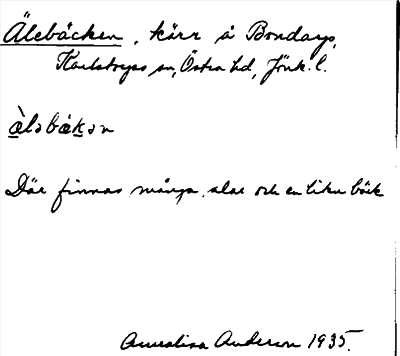 Älebäcken, kärr å Bondarp,
Karlstorps sn, Östra hd, Jönk. l.
ǜləbäkən
Där finnas många alar och en liten bäck
Annalisa Anderson 1935.